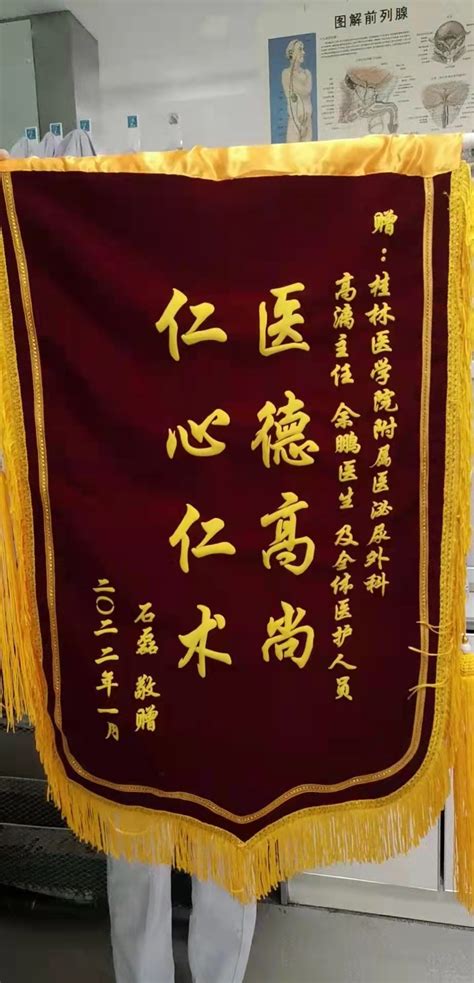 图解前列腺
赠：桂林医学院附属医泌尿外科
高漓主任 余鹏医生 及全体医护人员
医德高尚
仁心仁术
石磊 敬赠
二〇二二年一月